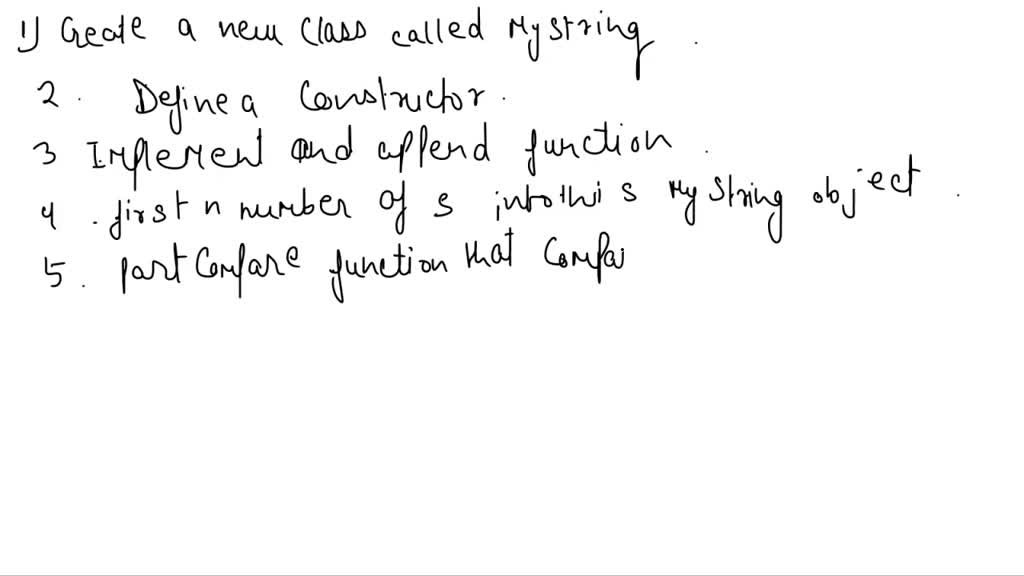 1) Create a new Class called MyString.
2. Define a Constructor.
3 Implement and append function.
4. first n number of s into this MyString object.
5. partCompare function that Compa